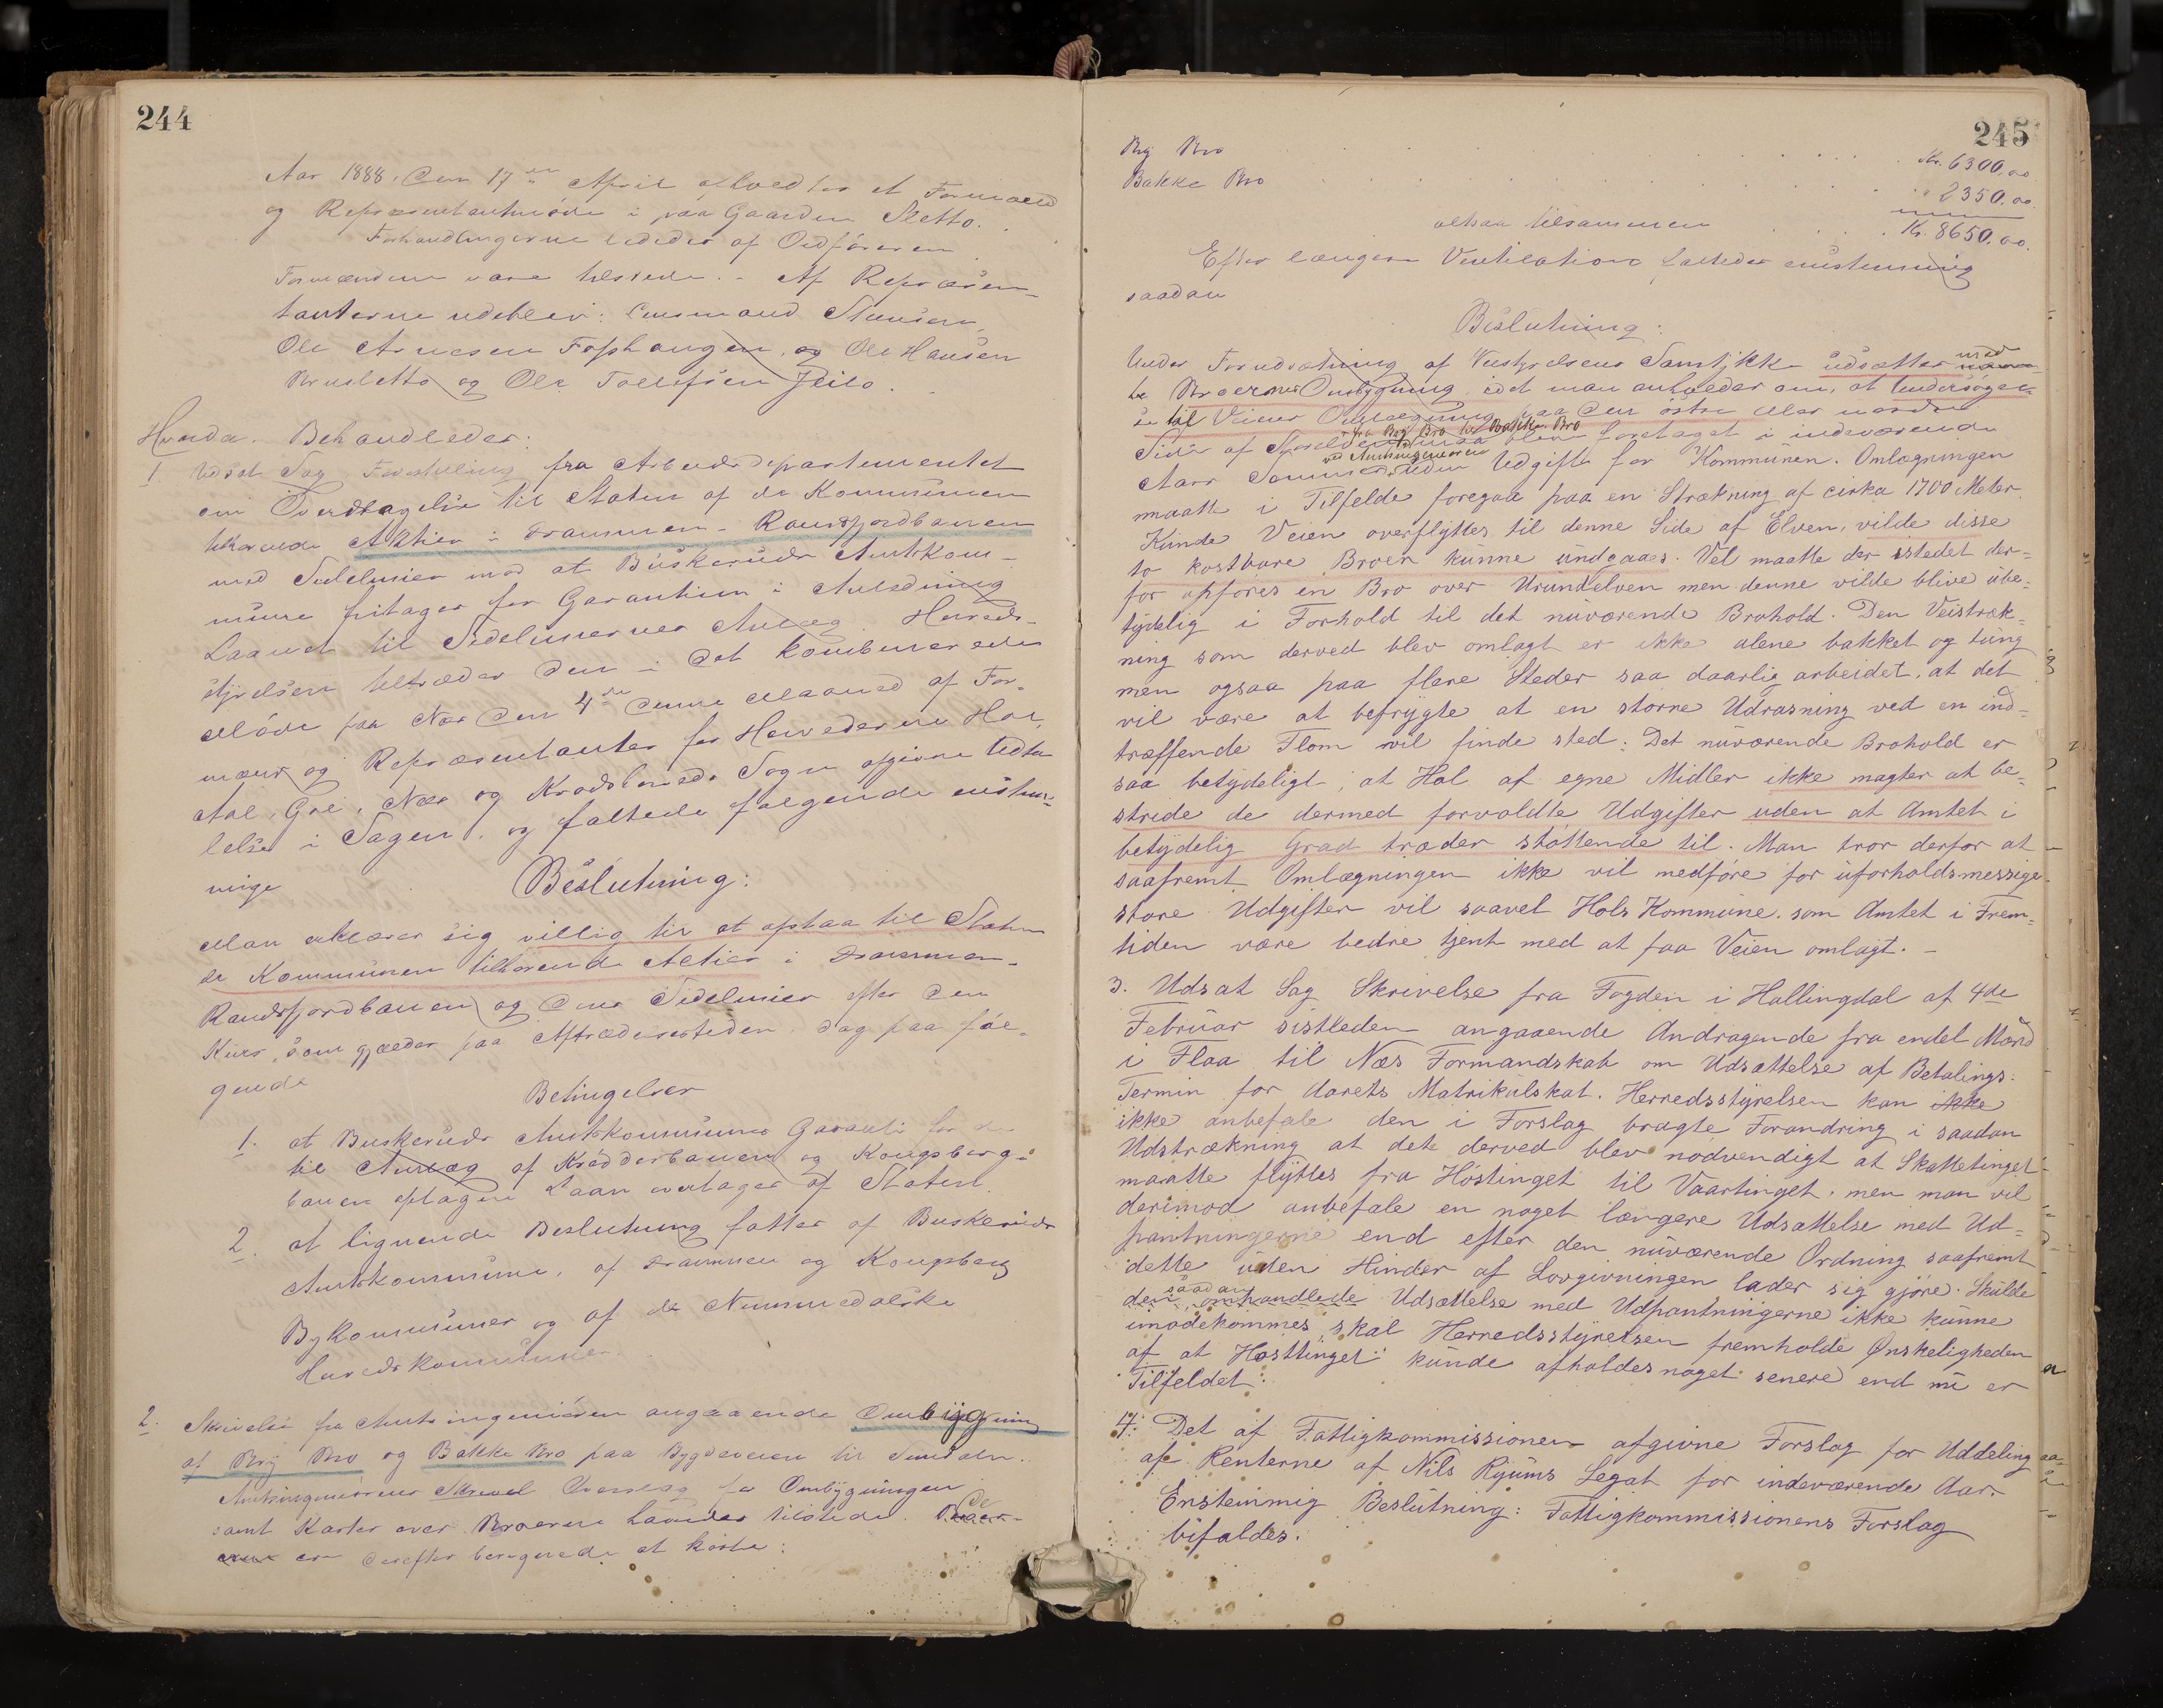 244
Aar 1888, den 17de April afholdtes et Formænd
og Repræsentantmøde i paa Gaarden Sletto.
Forhandlingerne lededes af Ordføreren
Formændene vare tilstede. - Af Repræsen-
tanterne udeblev: Lensmand Steensen,
Ole Arnesen Fossgaugen, og Ole Hansen
Brusletto og Ole Tollefsen Jeilo.
Hvorda. Behandledes:
1. Udsat Sag Forestilling fra Arbeidsdepartementet
om Overdragelse til Staten af de Kommunen
tilhørende Aktier i Drammen-Randsfjordbanen
med Sidelinier mod at Buskeruds Amtskom-
mune fritages for Garantien i Anledning
Laanet til Sidelinernes Anlæg. Herreds-
styrelsen tiltræder den i det kombinerede
Møde paa Næs den 4de denne Maaned af For-
mænd og Repræsentanter for Herrederne Hol,
Aal, Gol, Næs og Krødsherreds Sogn afgivne Udta-
lelse i Sagen, og fattede følgende enstem-
mige
Beslutning:
Man erklærer sig villig til at afstaa til Staten
de Kommunen tilhørende Aktier i Drammen-
Randsfjordbanen og dens Sidelinier efter den
Kurs, som gjælder paa Aftrædelsestiden dog paa føl-
gende
Betingelser
1. at Buskeruds Amtskommunes Garanti for de
til Anlæg af Krødderbanen og Kongsberg-
banen optagne Laan overtages af Staten.
2. at lignende Beslutning fattes af Buskeruds
Amtskommune, af Drammen og Kongsberg
Bykommuner og af de Nummedalske
Herredskommuner.
2. Skrivelse fra Amtsingeniøren angaaende Ombygning
af Bry Bro og Bakke Bro paa Bygdeveien til Sundalen.
Amtsingeniørens Skrivel Overslag for Ombygningen
samt Karter over Broerne havdes tilstede. De
er derefter beregnede at koste:
245
Bry Bro . . . . . Kr. 6300,00
Bakke Bro . . . . . " 2350,00
altsaa tilsammen . . . . Kr. 8650,00.
Efter længere Ventilation fattedes enstemmig
saadan
Beslutning:
Under Forudsætning af Veistyrelsens Samtykke udsættes med
te Broernes Ombygning idet man anholder om, at Undersøgel-
se til Veiens Omlægning paa den østre eller nordre
fra Bry Bro til Bakke Bro
Side af maa blive foretaget i indeværende
ved Amtsingeniøren
Aars Sommer uden Udgift for Kommunen. Omlægningen
maatte i Tilfelde foregaa paa en Strækning af cirka 1700 Meter.
Kunde Veien overflyttes til denne Side af Elven, vilde disse
to kostbare Broer kunne undgaaes. Vel maatte der istedet der-
for opføres en Bro over Urundelven men denne vilde blive ube-
tydelig i Forhold til det nuværende Brohold. Den Veistræk-
ning som derved blev omlagt er ikke alene bakket og tung
men ogsaa paa flere Steder saa daarlig arbeidet, at det
vil være at befrygte at en større Udrasning ved en ind-
træffende Flom vil finde sted: Det nuværende Brohold er
saa betydeligt, at Hol af egne Midler ikke magter at be-
stride de dermed forvoldte Udgifter uden at Amtet i
betydelig Grad træder støttende til. Man tror derfor at
saafremt Omlægningen ikke vil medføre for uforholdsmessige
store Udgifter vil saavel Hols Kommune som Amtet i Frem-
tiden være bedre tjent med at faa Veien omlagt. -
3. Udsat Sag Skrivelse fra Fogden i Hallingdal af 4de
Februar sistleden angaaende Andragende fra endel Mænd
i Flaa til Næs Formandskab om Udsættelse af Betalings-
Termin for Aarets Matrikulskat. Herredsstyrelsen kan ikke
ikke anbefale den i Forslag bragte Forandring i saadan
Udstrækning at det derved blev nødvendigt at Skattetinget
maatte flyttes fra Høstinget til Vaartinget, men man vil
derimod anbefale en noget længere Udsættelse med Ud-
pantningerne end efter den nuværende Ordning saafremt
dette uden Hinder af Lovgivningen lader sig gjøre. Skulde
saadan
den omhandlede Udsættelse med Udpantningerne ikke kunne
imødekommes, skal Herredsstyrelsen fremholde Ønskeligheden
af at Høsttinget kunde afholdes noget senere end nu er
Tilfeldet.
4. Det af Fattigkommissionen afgivne Forslag for Uddeling
af Renterne af Nils Ryums Legat for indeværende Aar.
Enstemmig Beslutning: Fattigkommissionens Forslag
bifaldes.